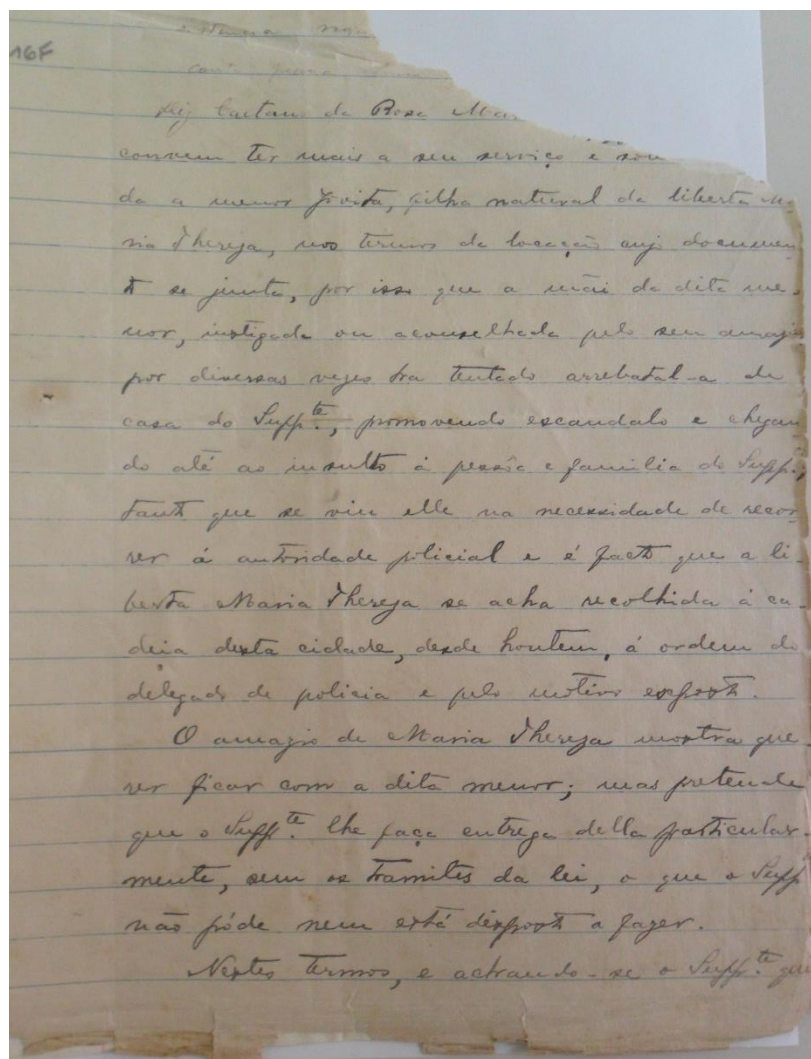 16F
Diz Caetano da Rosa Ma
convem ter mais a seu serviço e
da a menor Jovita, filha natural da liberta Ma
ria Thereza, nos termos da locação cujo documen
to se junta, por isso que a mãi da dita me-
nor, instigada ou aconselhada pelo seu amazio
por diversas vezes tem tentado arrebatal-a de
casa do Supp.te, promovendo escandalo e chegan
do até ao insulto á pessôa e familia do Supp.te,
tanto que se viu elle na necessidade de recor-
rer á autoridade policial e é facto que a li-
berta Maria Thereza se acha recolhida á ca-
deia desta cidade, desde hontem, á ordem do
delegado de policia e pelo motivo exposto.
O amazio de Maria Thereza mostra que-
rer ficar com a dita menor; mas pretende
que o Supp.te lhe faça entrega della particular-
mente, sem os tramites da lei, o que o Supp
não póde nem está disposto a fazer.
Nestes termos, e achando-se o Supp.te que